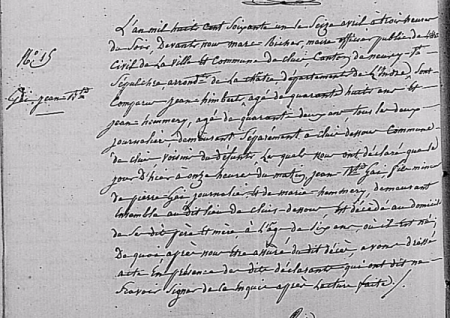 L'an mil huit cent soixante un le seize avril a trois heures
du soir, Devants nous marc Bicher, maire officier public de
N.o 15
civil de La Ville et Commune de cluis Canton de neuvy St
Sépulchre, arrond.t de la chatre département de L'Indre, sont
Gai jean B.te
Comparus jean himbert, agé de quarante huits ans et
jean hemmery, agé de quarante deux ans, tous les deux
journalier, demeurant Séparément a cluis dessous Commune
de cluis voisins du défunts, Lesquels nous ont déclaré que le
jour D'hier a onze heures du matin, jean B.te Gai fils mineur
de pierre Gai journalier et de marie hemmery, demeurant
Ensemble au dit lieu de Cluis-dessous, est décédé au domicile
de Ses dit père et mère à L'âge de six ans, où il est né;
De quoi après nous être assuré du dit décès, avons dressé
acte En présence des dits déclarants qui ont dit ne
Savoir Signer de la Enquis après Lecture faite./.